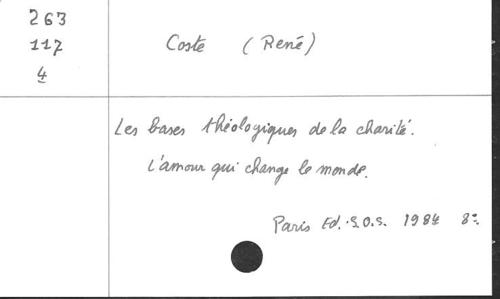 263
117
4
Coste (René)
Les bases théologiques de la charité.
L'amour qui change le monde.
Paris Ed. S.O.S. 1984 8°